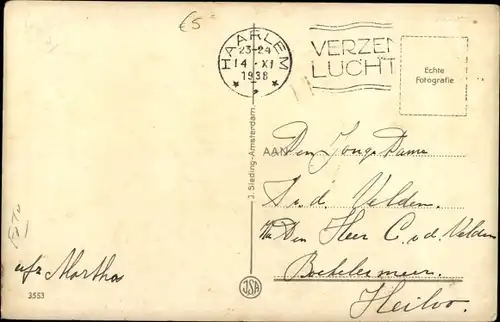 €5
HAARLEM
23-24
14 · XI
1938
VERZEN
LUCHT
Echte
Fotografie
J. Sleding-Amsterdam
AAN Den Jonge Dame
v.d. Velden.
Den Heer C. v.d. Velden
Boekelermeer.
Heiloo.
afz Martha
3553
JSA